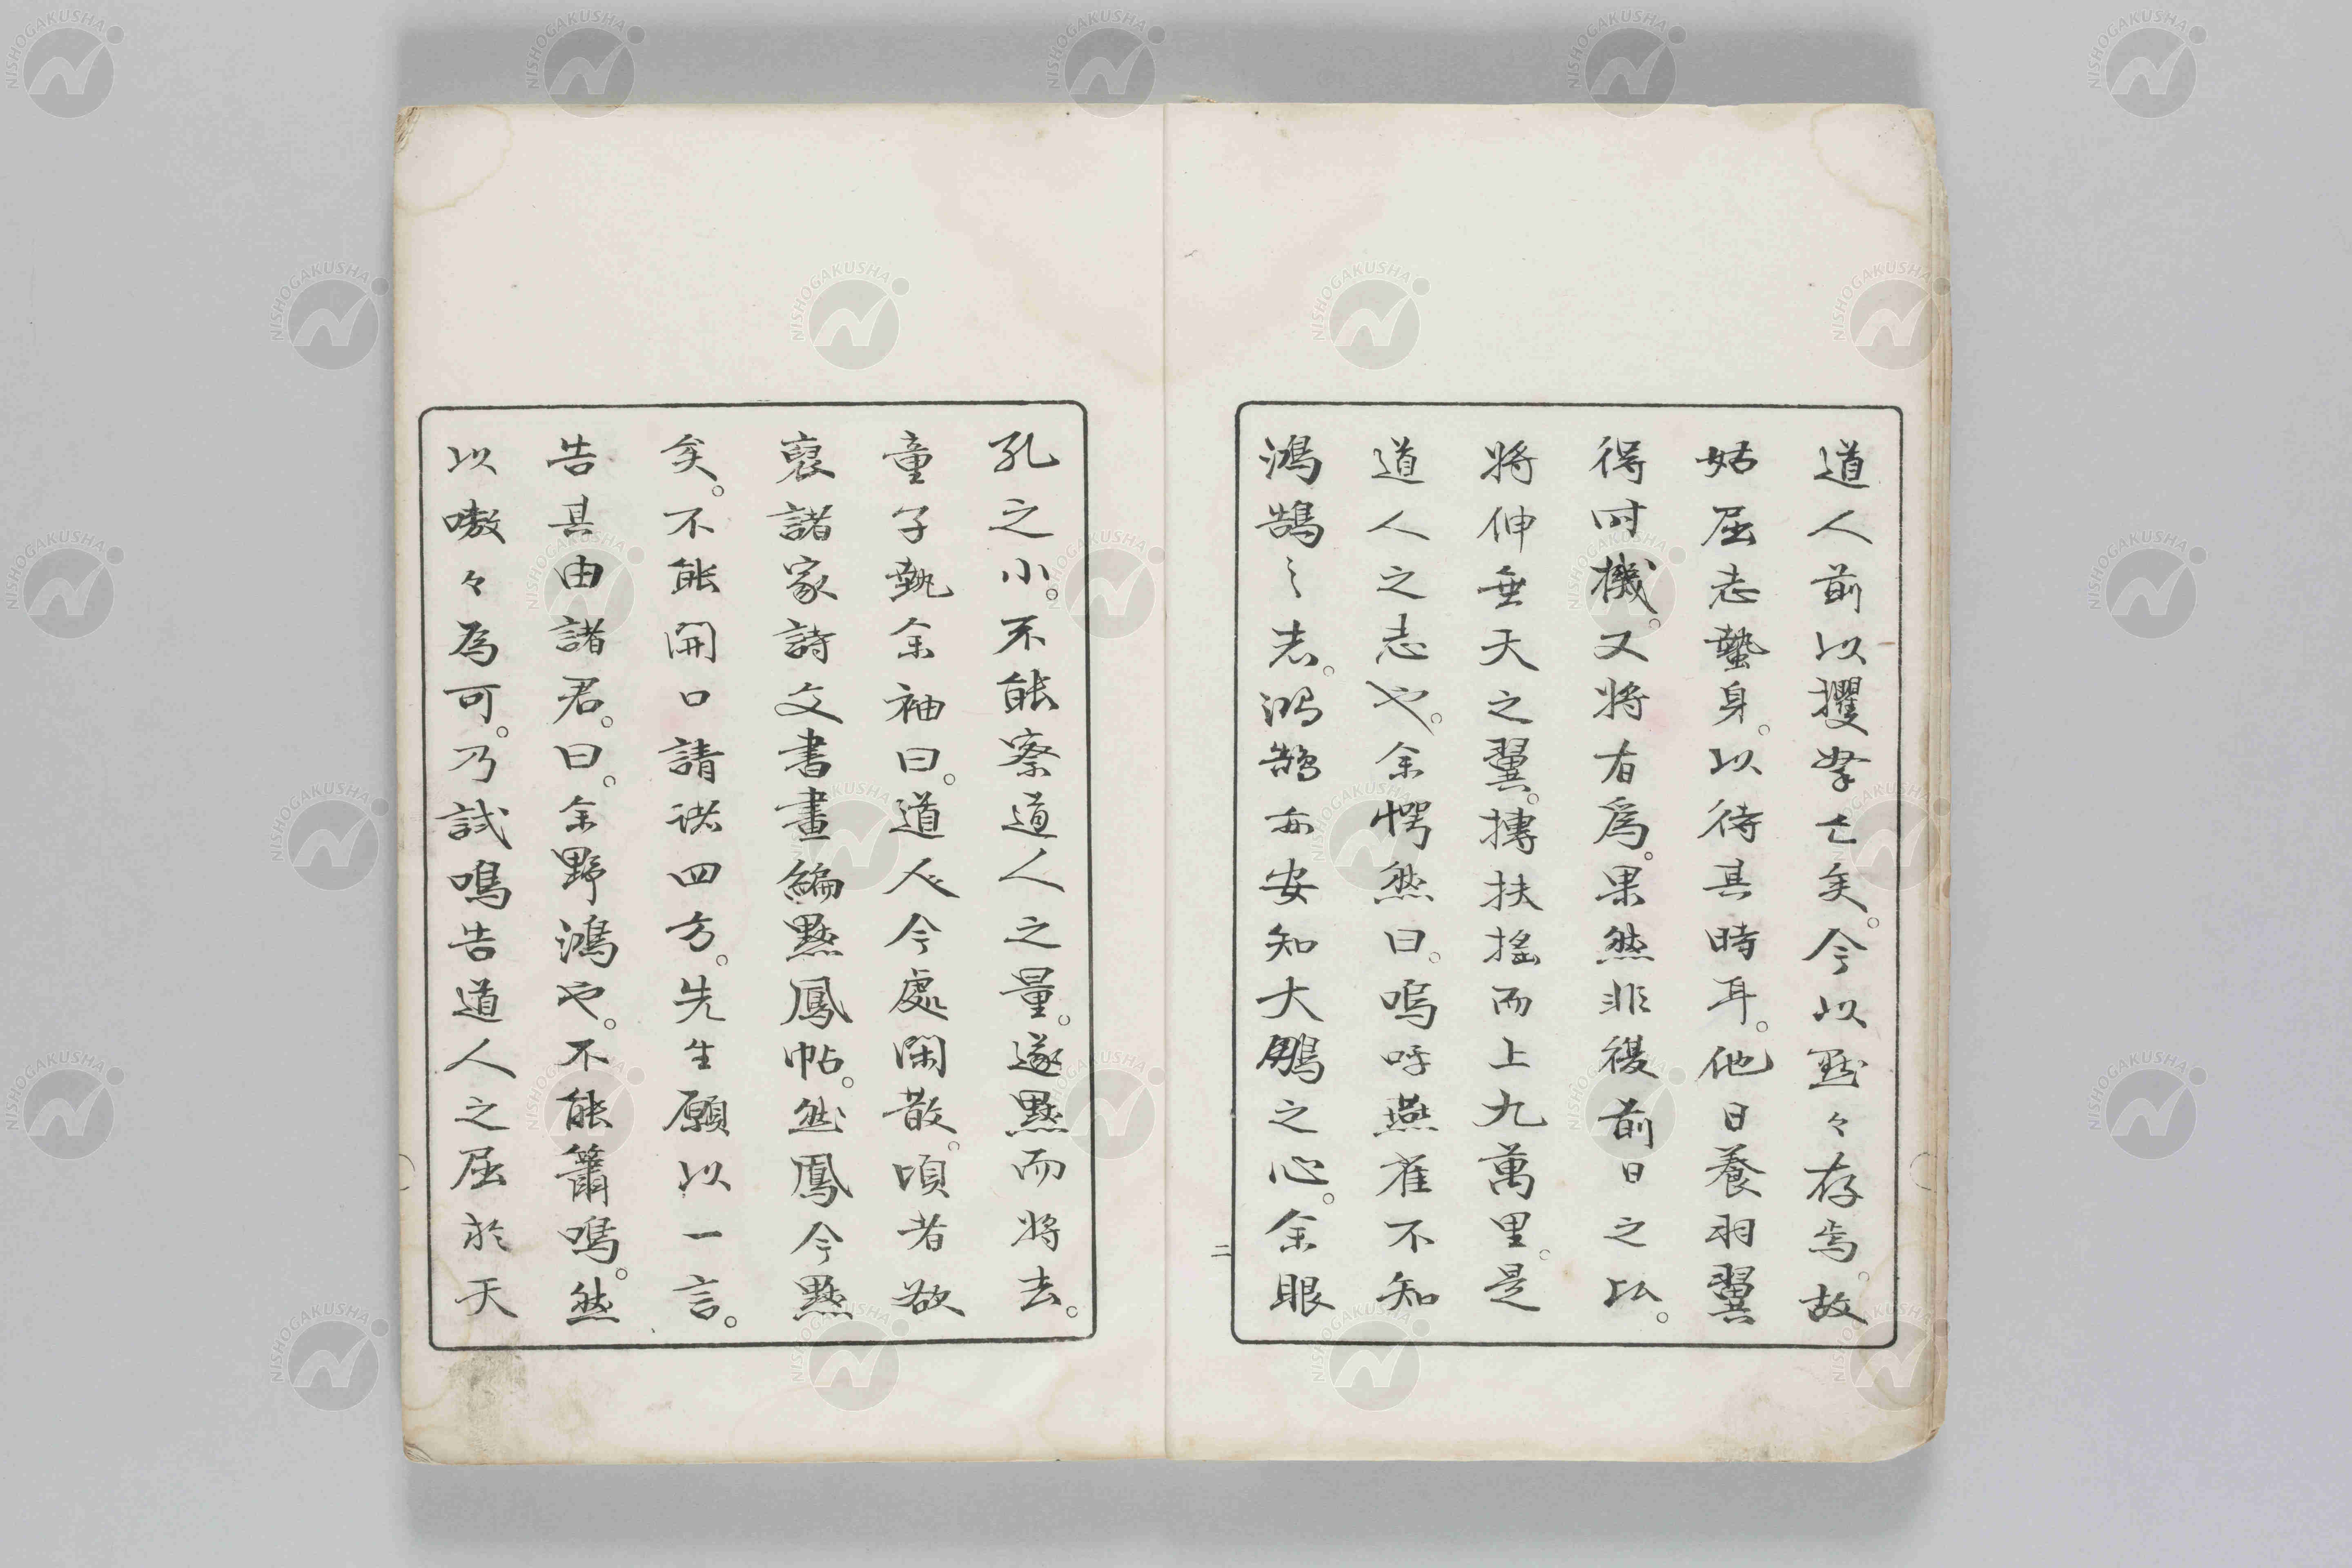 道人前以攫拏亡矣。今以默々存焉。故
姑屈志蟄身。以待其時耳。他日養羽翼
得时機。又将有為。果然非復前日之比。
将伸垂天之翼。搏扶搖而上九萬里。是
道人之志也。余愕然曰。嗚呼燕雀不知
鴻鵠之志。鴻鵠亦安知大鵬之心。余眼
二
孔之小。不能察道人之量。遂默而将去。
童子執余袖曰。道人今處閑散。頃者欲
裒諸家詩文書畫編默鳳帖。然鳳今默
矣。不能開口請諸四方。先生願以一言。
告其由諸君。曰。余野鴻也。不能簫鳴。然
以嗷々為可。乃試鳴告道人之屈於天
NISHOGAKUSHA